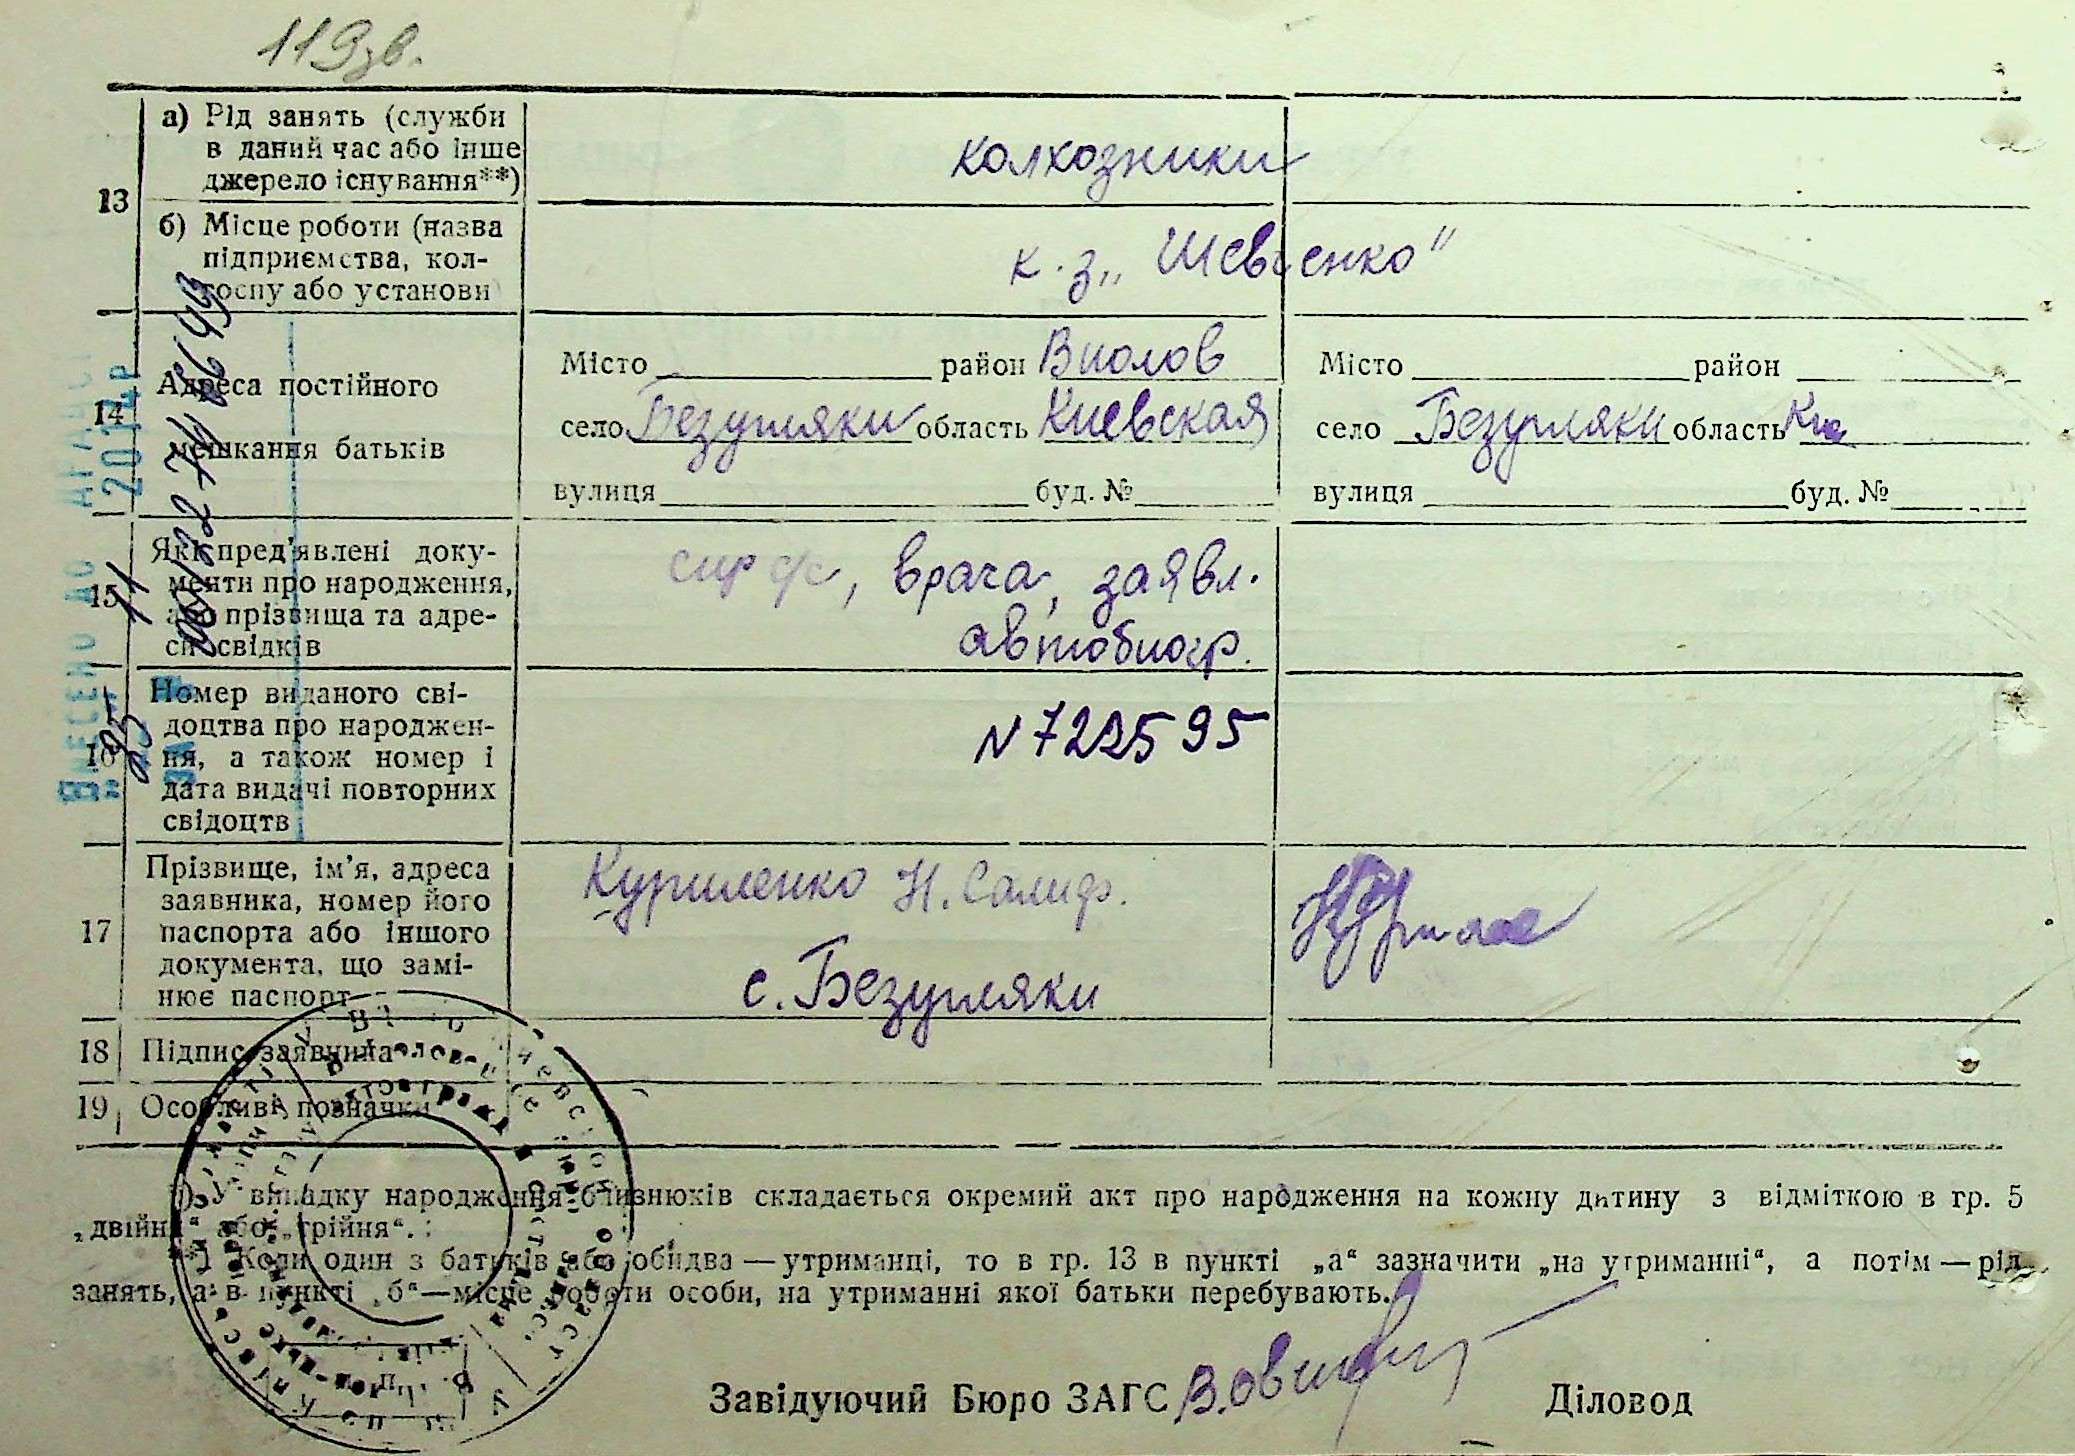 119зв.
13
а) Рід занять (служби
в даний час або інше
джерело існування**)
колхозники
б) Місце роботи (назва
підприємства, кол-
госпу або установи
к-з „Шевченко"
14
Адреса постійного
мешкання батьків
Місто район село Безугляки область Киевская
вулиця буд. №
Місто район
село Безугляки область Кие
вулиця буд. №
15
Які пред'явлені доку-
менти про народження,
або прізвища та адре-
си свідків
врача, заявл.
автобиогр.
16
Номер виданого сві-
доцтва про народжен-
ня, а також номер і
дата видачі повторних
свідоцтв
N 722595
17
Прізвище, ім'я, адреса
заявника, номер його
паспорта або іншого
документа, що замі-
нює паспорт
Куриленко Н.
с. Безугляки
18 Підпис заявника
19 Особливі позначки
*) У випадку народження близнюків складається окремий акт про народження на кожну дитину з відміткою в гр. 5
„двійня" або „трійня".
**) Коли один з батьків або обидва — утриманці, то в гр. 13 в пункті „а" зазначити „на утриманні", а потім — рід
занять, а в пункті „б" — місце роботи особи, на утриманні якої батьки перебувають.
Завідуючий Бюро ЗАГС Діловод